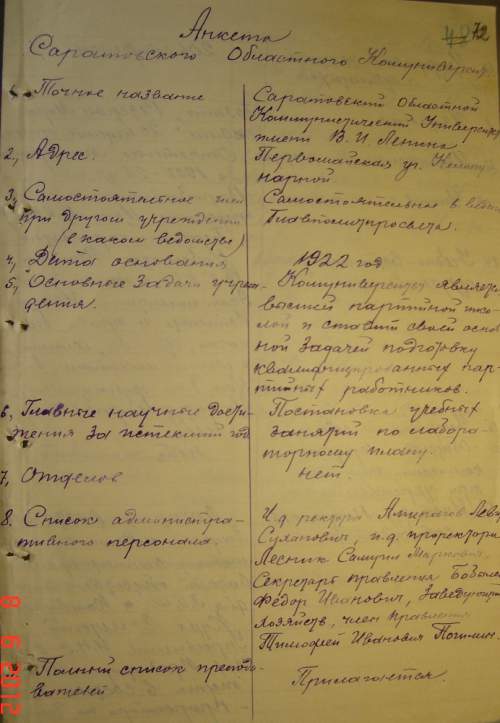 72
Анкета
Саратовского Областного Коммуниверси
1, Точное название
Саратовский Областной
Коммунистический Университ
имени В. И. Ленина
2, Адрес.
Первомайская ул.
нарной.
3, Самостоятельное или
при другом учреждении
(в каком ведомстве)
Самостоятельное в веден
Главполитпросвета.
4, Дата основания
1922 год
5, Основные задачи учреж-
дения.
Коммуниверситет являетс
высшей партийной шко-
лой и ставит своей основ
ной задачей подготовку
квалифицированных пар-
тийных работников.
6, Главные научные дости-
жения за истекший год
Постановка учебных
занятий по лабора-
торному плану.
7, Отделов
нет.
8. Список администра-
тивного персонала.
И.д. ректора Лев
Сулханович, и.д. проректора
Лесник Самуил Маркович,
Секретарь правления
Фёдор Иванович, Заведующий
хозяйств, член правления
Тимофей Иванович
Полный список препода-
вателей
Прилагается.
8 6 2012